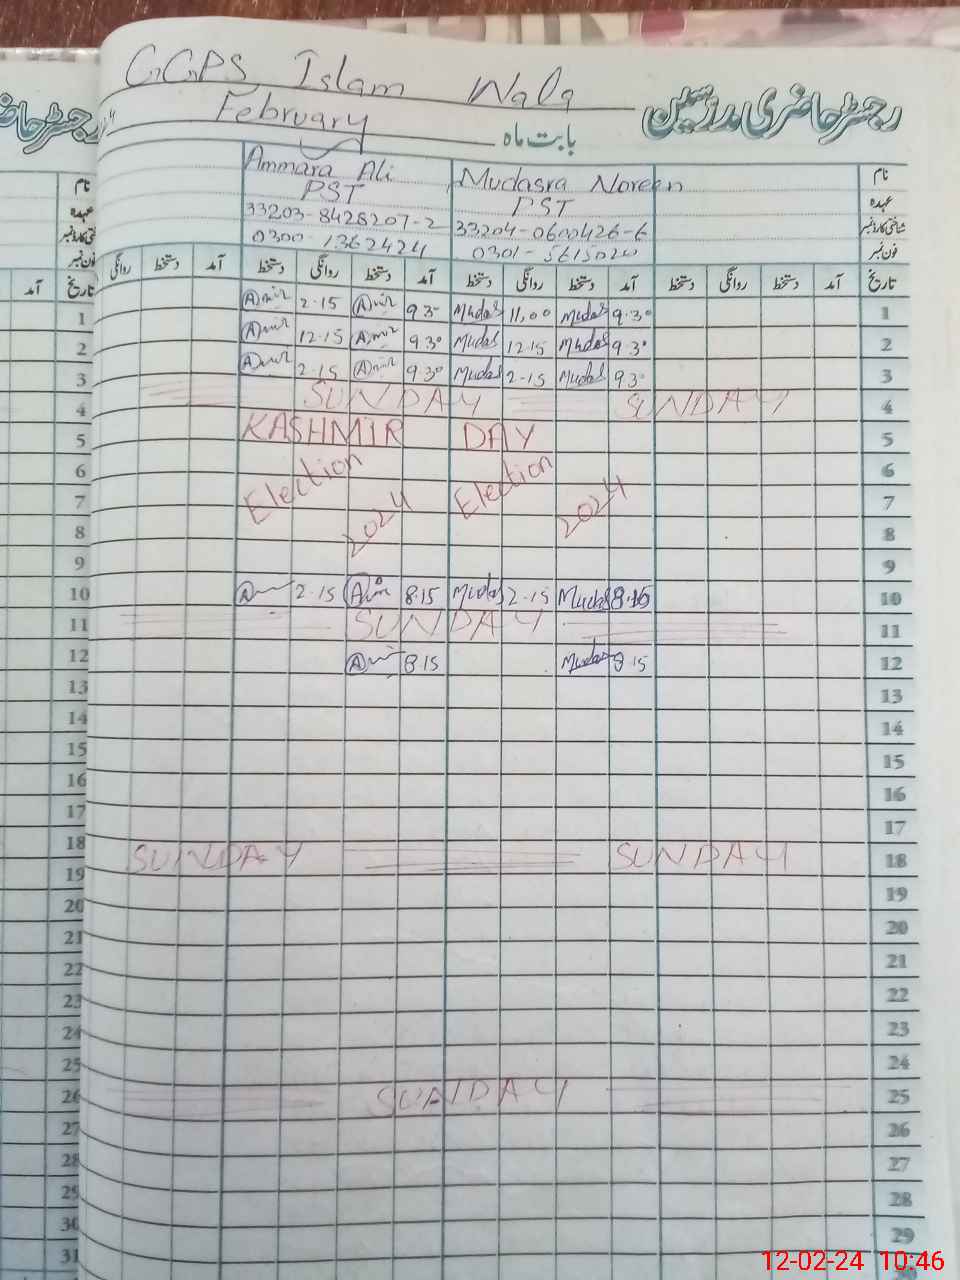 GGPS Islam Wala
رجسٹر حاضری مدرسین
February
بابت ماہ
Ammara Ali Mudasra Noreen نام
PST PST عہدہ
33203-8428207-2 33204-0600426-6 شناختی کارڈ نمبر
0300-1362424 0301- فون نمبر
روانگی دستخط آمد دستخط روانگی دستخط آمد دستخط روانگی دستخط آمد دستخط روانگی دستخط آمد تاریخ
1 2.15 930 Mudas 11,00 Mudas 9.30 1
2 12.15 930 Mudas 12.15 Mudas 9.30 2
3 2.15 930 Mudas 2-15 Mudas 930 3
4 SUNDAY SUNDAY 4
5 KASHMIR DAY 5
6 6
7 Election 2024 Election 2024 7
8 8
9 9
10 2.15 8.15 Mudas 2-15 Mudas 8.15 10
11 SUNDAY 11
12 8.15 Mudas 8.15 12
13 13
14 14
15 15
16 16
17 17
18 SUNDAY SUNDAY 18
19 19
20 20
21 21
22 22
23 23
24 24
25 SUNDAY 25
26 26
27 27
28 28
29 29
30
31
12-02-24 10:46